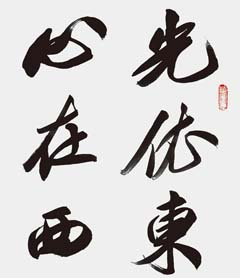 光依東
心在西